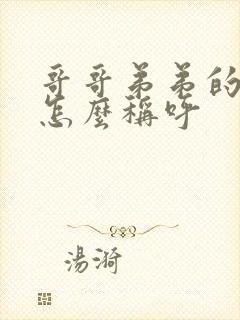 哥哥弟弟的
怎麼稱呼
湯漪